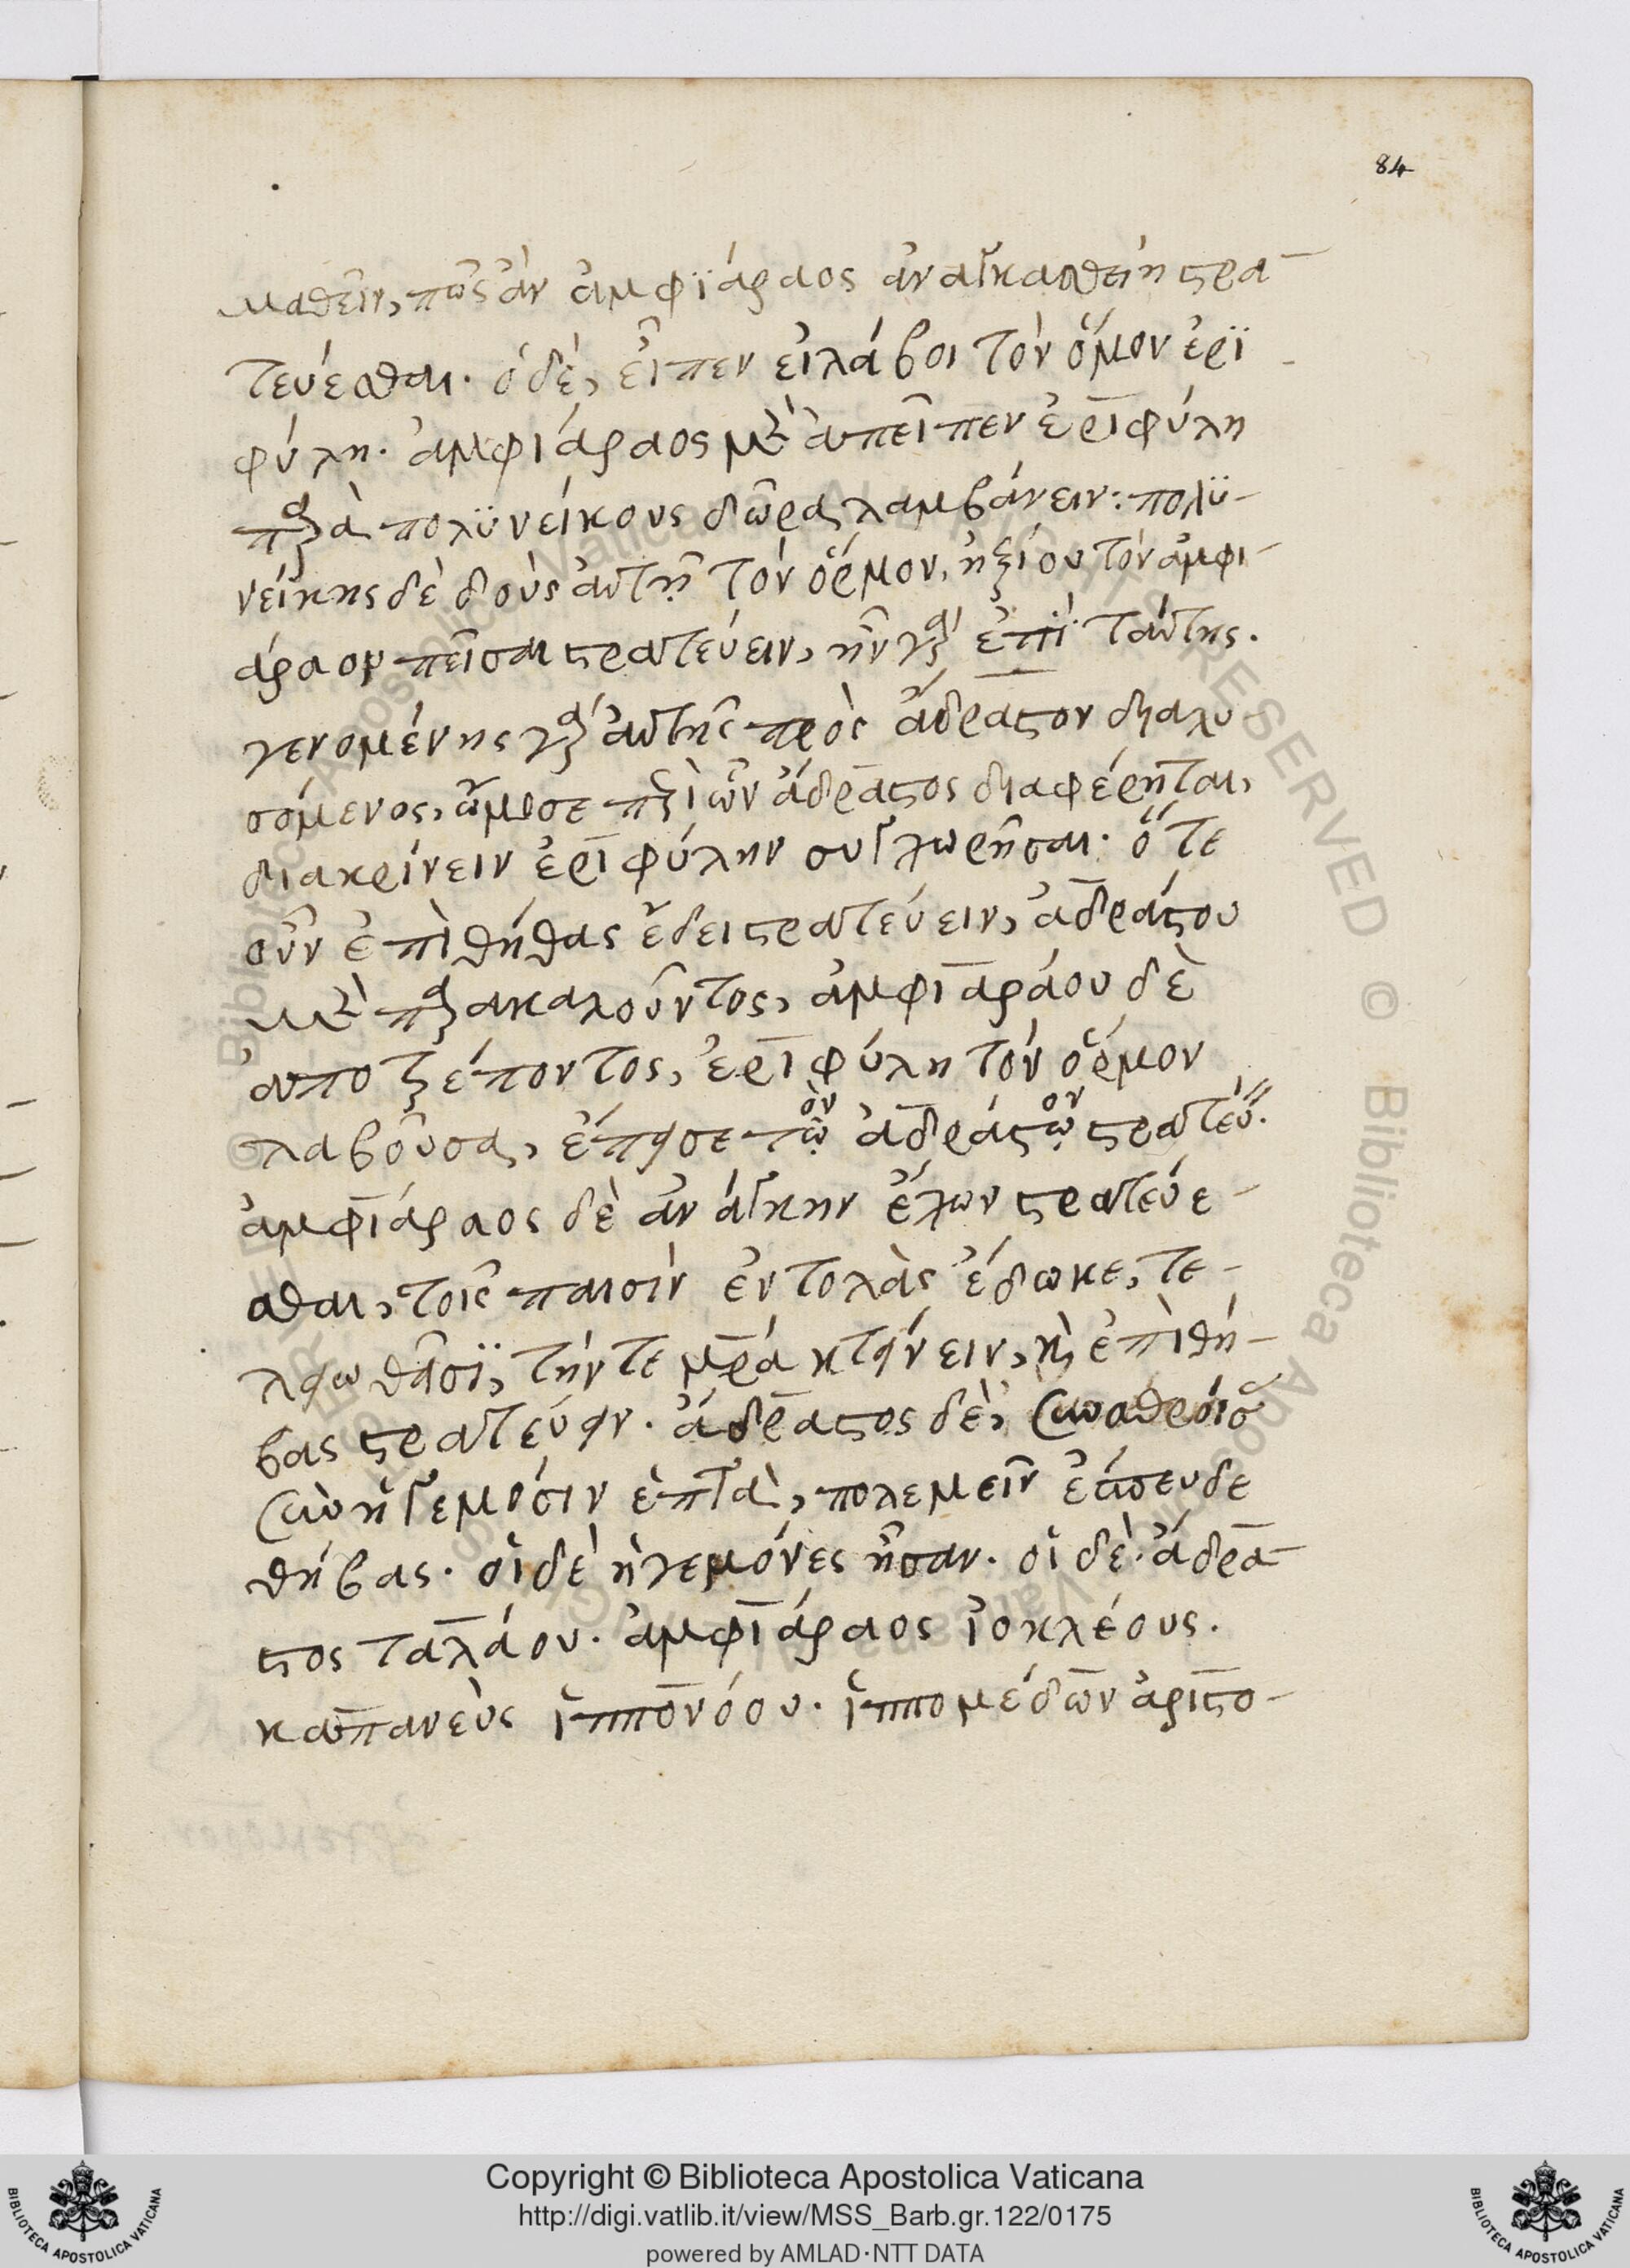 84
μαθεῖν, πῶς ἂν ἀμφϊάραος ἀναγκασθείη στρα-
τεύεσθαι. ὁ δὲ, εἶπεν εἰ λάβοι τὸν ὅρμον ἐρϊ-
φύλη. ἀμφιάραος μὲν ἀπεῖπεν ἐριφύλη
παρὰ πολϋνείκους δῶρα λαμβάνειν: πολϋ-
νείκης δὲ δοὺς αὐτῇ τὸν ὅρμον, ἠξίου τὸν ἀμφι-
άραον πεῖσαι στρατεύειν, ἦν γὰρ ἐπὶ ταύτης.
γενομένης γὰρ αὐτῆς πρὸς ἄδραστον διαλυ
σόμενος, ὤμοσε περὶ ὧν ἄδραστος διαφέρηται,
διακρίνειν ἐριφύλην συγχωρῆσαι. ὅτε
οὖν ἐπὶ θήβας ἔδει στρατεύειν, ἀδράστου
μὲν παρακαλοῦντος, ἀμφιαράου δὲ
ἀποτρέποντος, ἐριφύλη τὸν ὅρμον
λαβοῦσα, ἔπεισε τὸν ἀδράστον στρατεύ.
ἀμφιάραος δὲ ἀνάγκην ἔχων στρατεύε-
σθαι, τοῖς παισὶν ἐντολὰς ἔδωκε, τε-
λειωθεῖσϊ, τήν τε μρα κτείνειν, καὶ ἐπὶ θή-
βας στρατεύειν. ἄδραστος δὲ, συναθροίσ
σὺν ἡγεμόσιν ἑπτὰ, πολεμεῖν ἔσπευδε
θήβας. οἱ δὲ ἡγεμόνες ἦσαν. οἱ δὲ. ἄδρα-
στος ταλάου. ἀμφιάραος ἰοκλέους.
καπανεὺς ἱππονόου. ἱππομέδων ἀριστο-
Copyright © Biblioteca Apostolica Vaticana
http://digi.vatlib.it/view/MSS_Barb.gr.122/0175
powered by AMLAD·NTT DATA